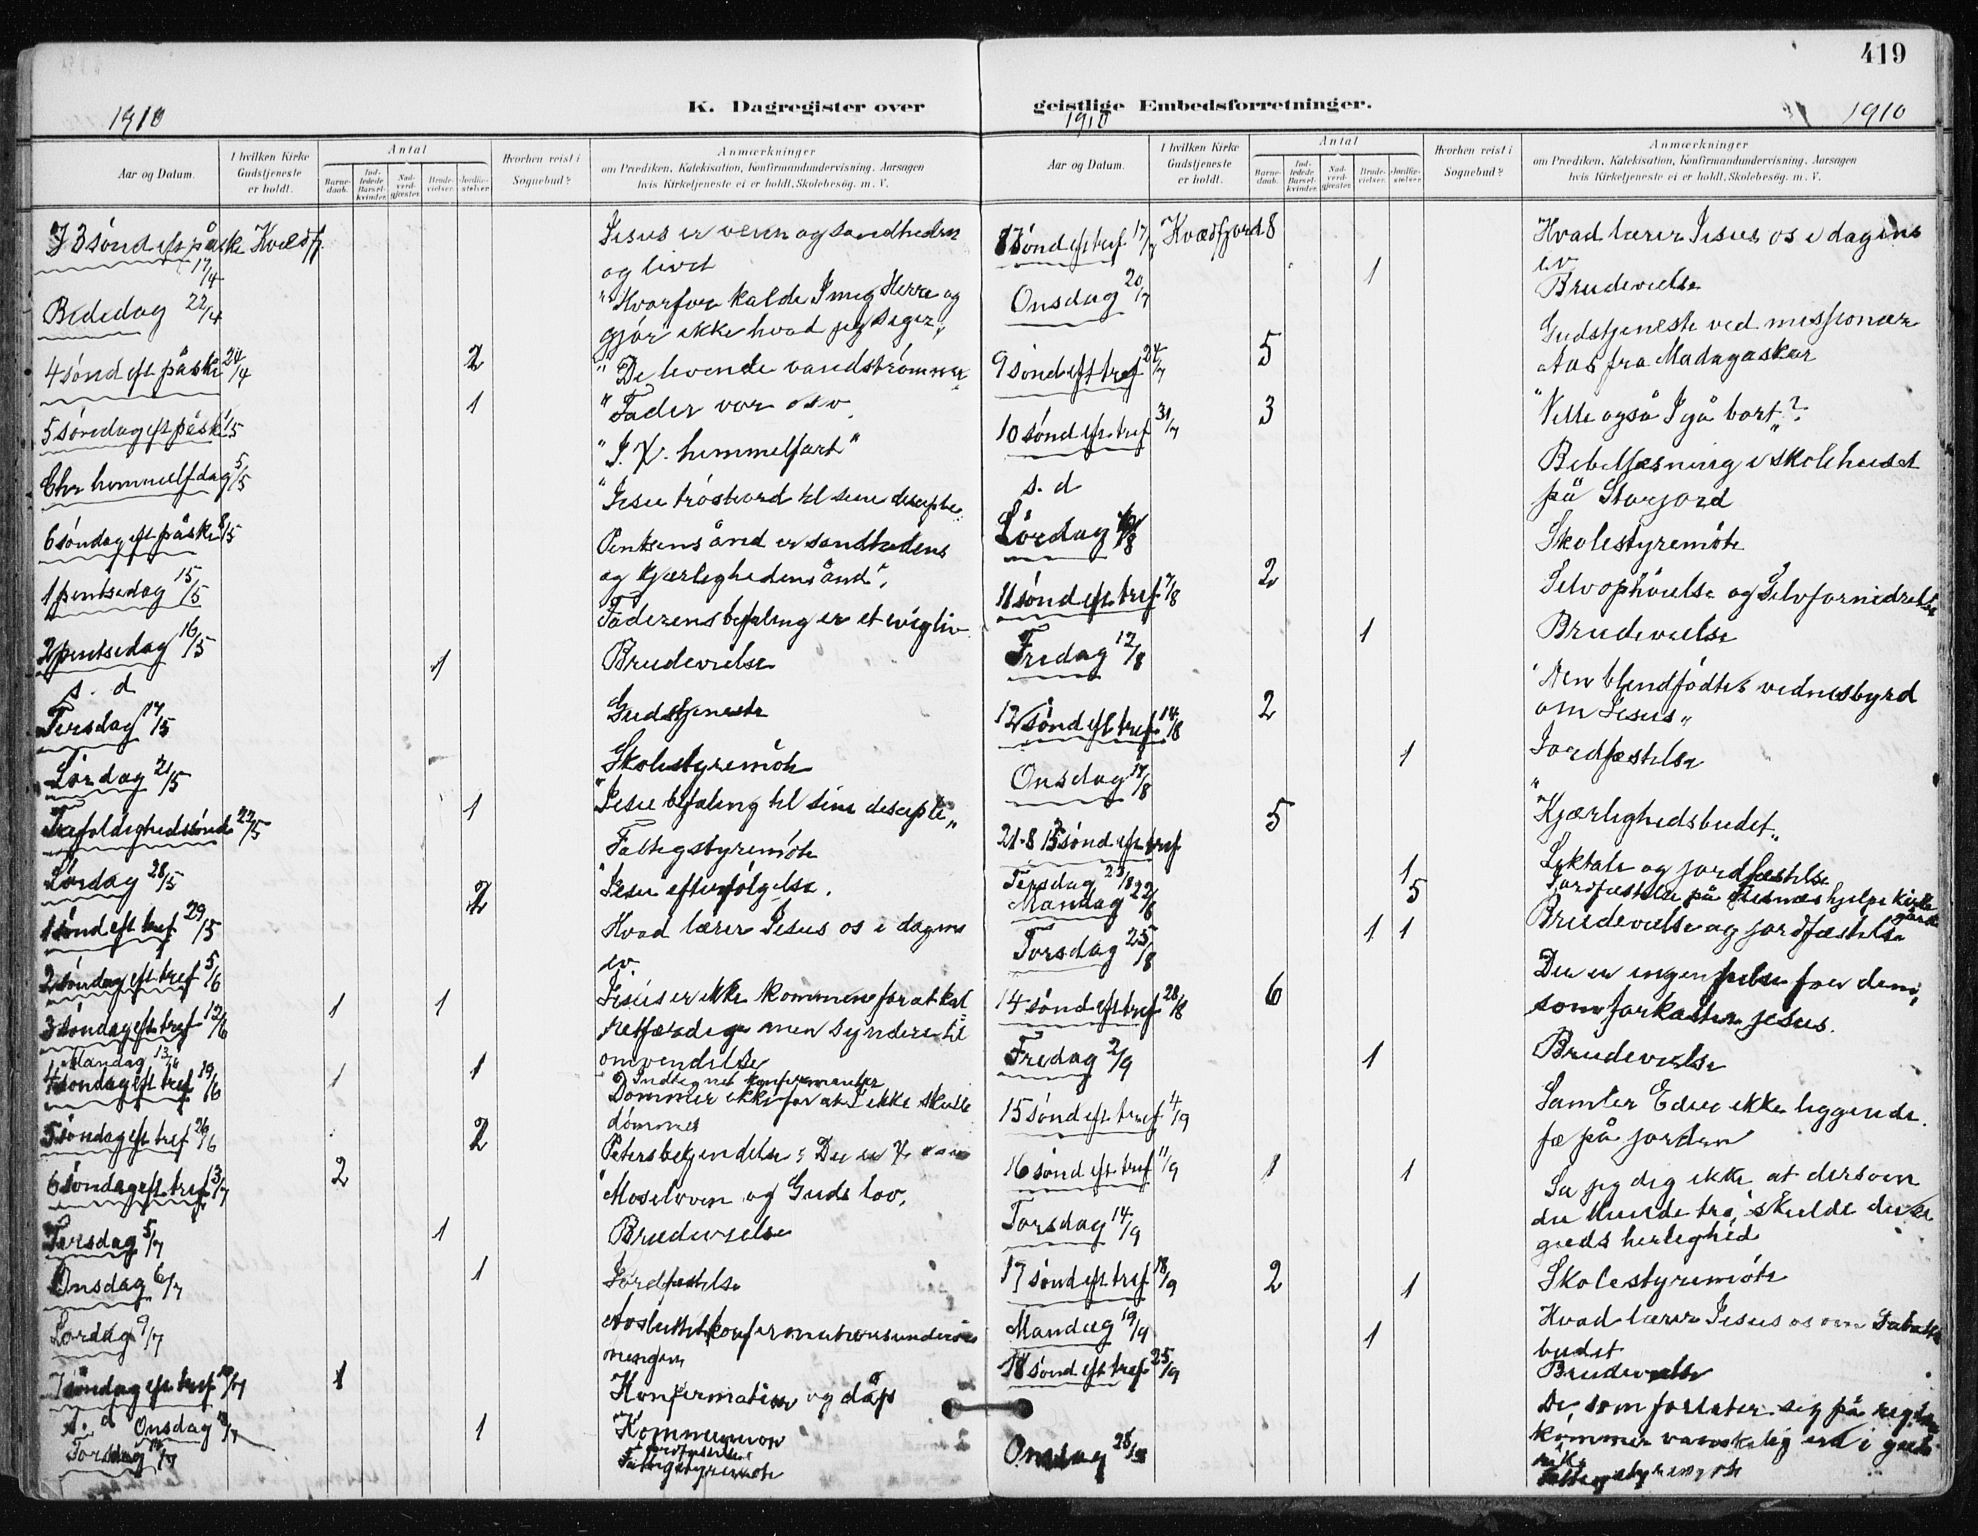 419
K. Dagregister over geistlige Embedsforretninger.
1910
1910
1910
Aar og Datum.
I hvilken Kirke Gudstjeneste er holdt.
Antal
Barnedaab.
Indledede Barselkvinder.
Nadverdgjester.
Brudevielser.
Jordfæstelser.
Hvorhen reist i Sognebud?
Anmærkninger
om Prædiken, Katekisation, Konfirmandundervisning, Aarsagen
hvis Kirketjeneste ei er holdt, Skolebesøg, m. V.
3 sønd eft påske Kvædfj.
17/4
Jesus er veien og sandheden
og livet
Bededag 22/4
"Hvorfor kalde I mig Herre og
gjör ikke hvad jeg siger"
4 sønd eft påske 24/4 2 "De levende vandströmmer
5 søndag eft påske 1/5 1 "Fader vor osv.
Chr himmelfdag 5/5 "J. X. himmelfart"
6 søndag eft påske 8/5 "Jesu tröstord til sine disciple
1 pintsedag 15/5 Pintsens ånd er sandhedens
og kjærlighedens ånd".
2 pintsedag 16/5 Faderens befaling er et evig liv
s. d 1 Brudevielse
Tirsdag 17/5 Gudstjeneste
Lördag 21/5 Skolestyremöte
Trefoldighedssönd 22/5 1 "Jesu befaling til sine disciple"
Lørdag 28/5 Fattigstyremöte
1 sönd eft tref 29/5 2 "Jesu efterfölgelse.
2 söndag eft tref 5/6 Hvad lærer Jesus os i dagens
ev
3 söndag eft tref 12/6 1 1 Jesus er ikke kommen for at kal
retfærdige men syndere til
omvendelse
Mandag 13/6 Indtegnet konfirmanter
4 söndag eft tref 19/6 1 1 Dömmer ikke for at I ikke skulle
dömmes
5 söndag eft tref 26/6 2 Peters bekjendelse: Du er X
6 söndag eft tref 3/7 2 "Moseloven og Guds lov.
Tirsdag 5/7 1 Brudevielse
Onsdag 6/7 1 Jordfæstelse
Lördag 9/7 Avsluttet konfirmationsundervis
ningen
7 söndag eft tref 10/7 1 Konfirmation og dåp
s. d Onsdag 1 Kommunion
Jordfæstelse
Torsdag Fattigstyremöte
Aar og Datum.
I hvilken Kirke Gudstjeneste er holdt.
Antal
Barnedaab.
Indledede Barselkvinder.
Nadverdgjester.
Brudevielser.
Jordfæstelser.
Hvorhen reist i Sognebud?
Anmærkninger
om Prædiken, Katekisation, Konfirmandundervisning, Aarsagen
hvis Kirketjeneste ei er holdt, Skolebesøg, m. V.
8 sönd eft tref 17/7 Kvædfjord 8 "Hvad lærer Jesus os i dagens
ev
Onsdag 20/7 1 Brudevielse
9 sönd eft tref 24/7 5 Gudstjeneste ved missionær
Aas fra Madagaskar
10 sönd eft tref 31/7 3 "Ville også I gå bort"?
s. d Bibellæsning i skolehuset
på Storjord
Lördag Skolestyremöte
11 sönd eft tref 7/8 2 Selvophöielse og Selvfornedrelse
Fredag 12/8 1 Brudevielse
12 sönd eft tref 14/8 2 "Den blindfödtes vidnesbyrd
om Jesus"
Onsdag 17/8 1 Jordfæstelse
21-8 13 sönd eft tref 5 "Kjærlighedsbudet"
Tirsdag 23/8 1 Liktale og jordfæstelse
Mandag 22/8 5 Jordfæstelse på hjelpekirke
gård
Torsdag 25/8 1 1 Brudevielse og jordfæstelse
14 sönd eft tref 28/8 6 Der er ingen frelse for dem,
som forkaster Jesus.
Fredag 2/9 1 Brudevielse
15 sönd eft tref 4/9 Samler Eder ikke liggende
fæ på jorden
16 sönd eft tref 11/9 1 1 Sa jeg dig ikke at dersom
du kunde tro, skulde du se
guds herlighed
Torsdag 14/9 Skolestyremöte
17 sönd eft tref 18/9 2 1 Hvad lærer Jesus os om Sabats
budet
Mandag 19/9 1 Brudevielse
18 sönd eft tref 25/9 De som forlater sig på rigdom
kommer vanskelig ind i guds
rike
Onsdag 28/9 Fattigstyremöte